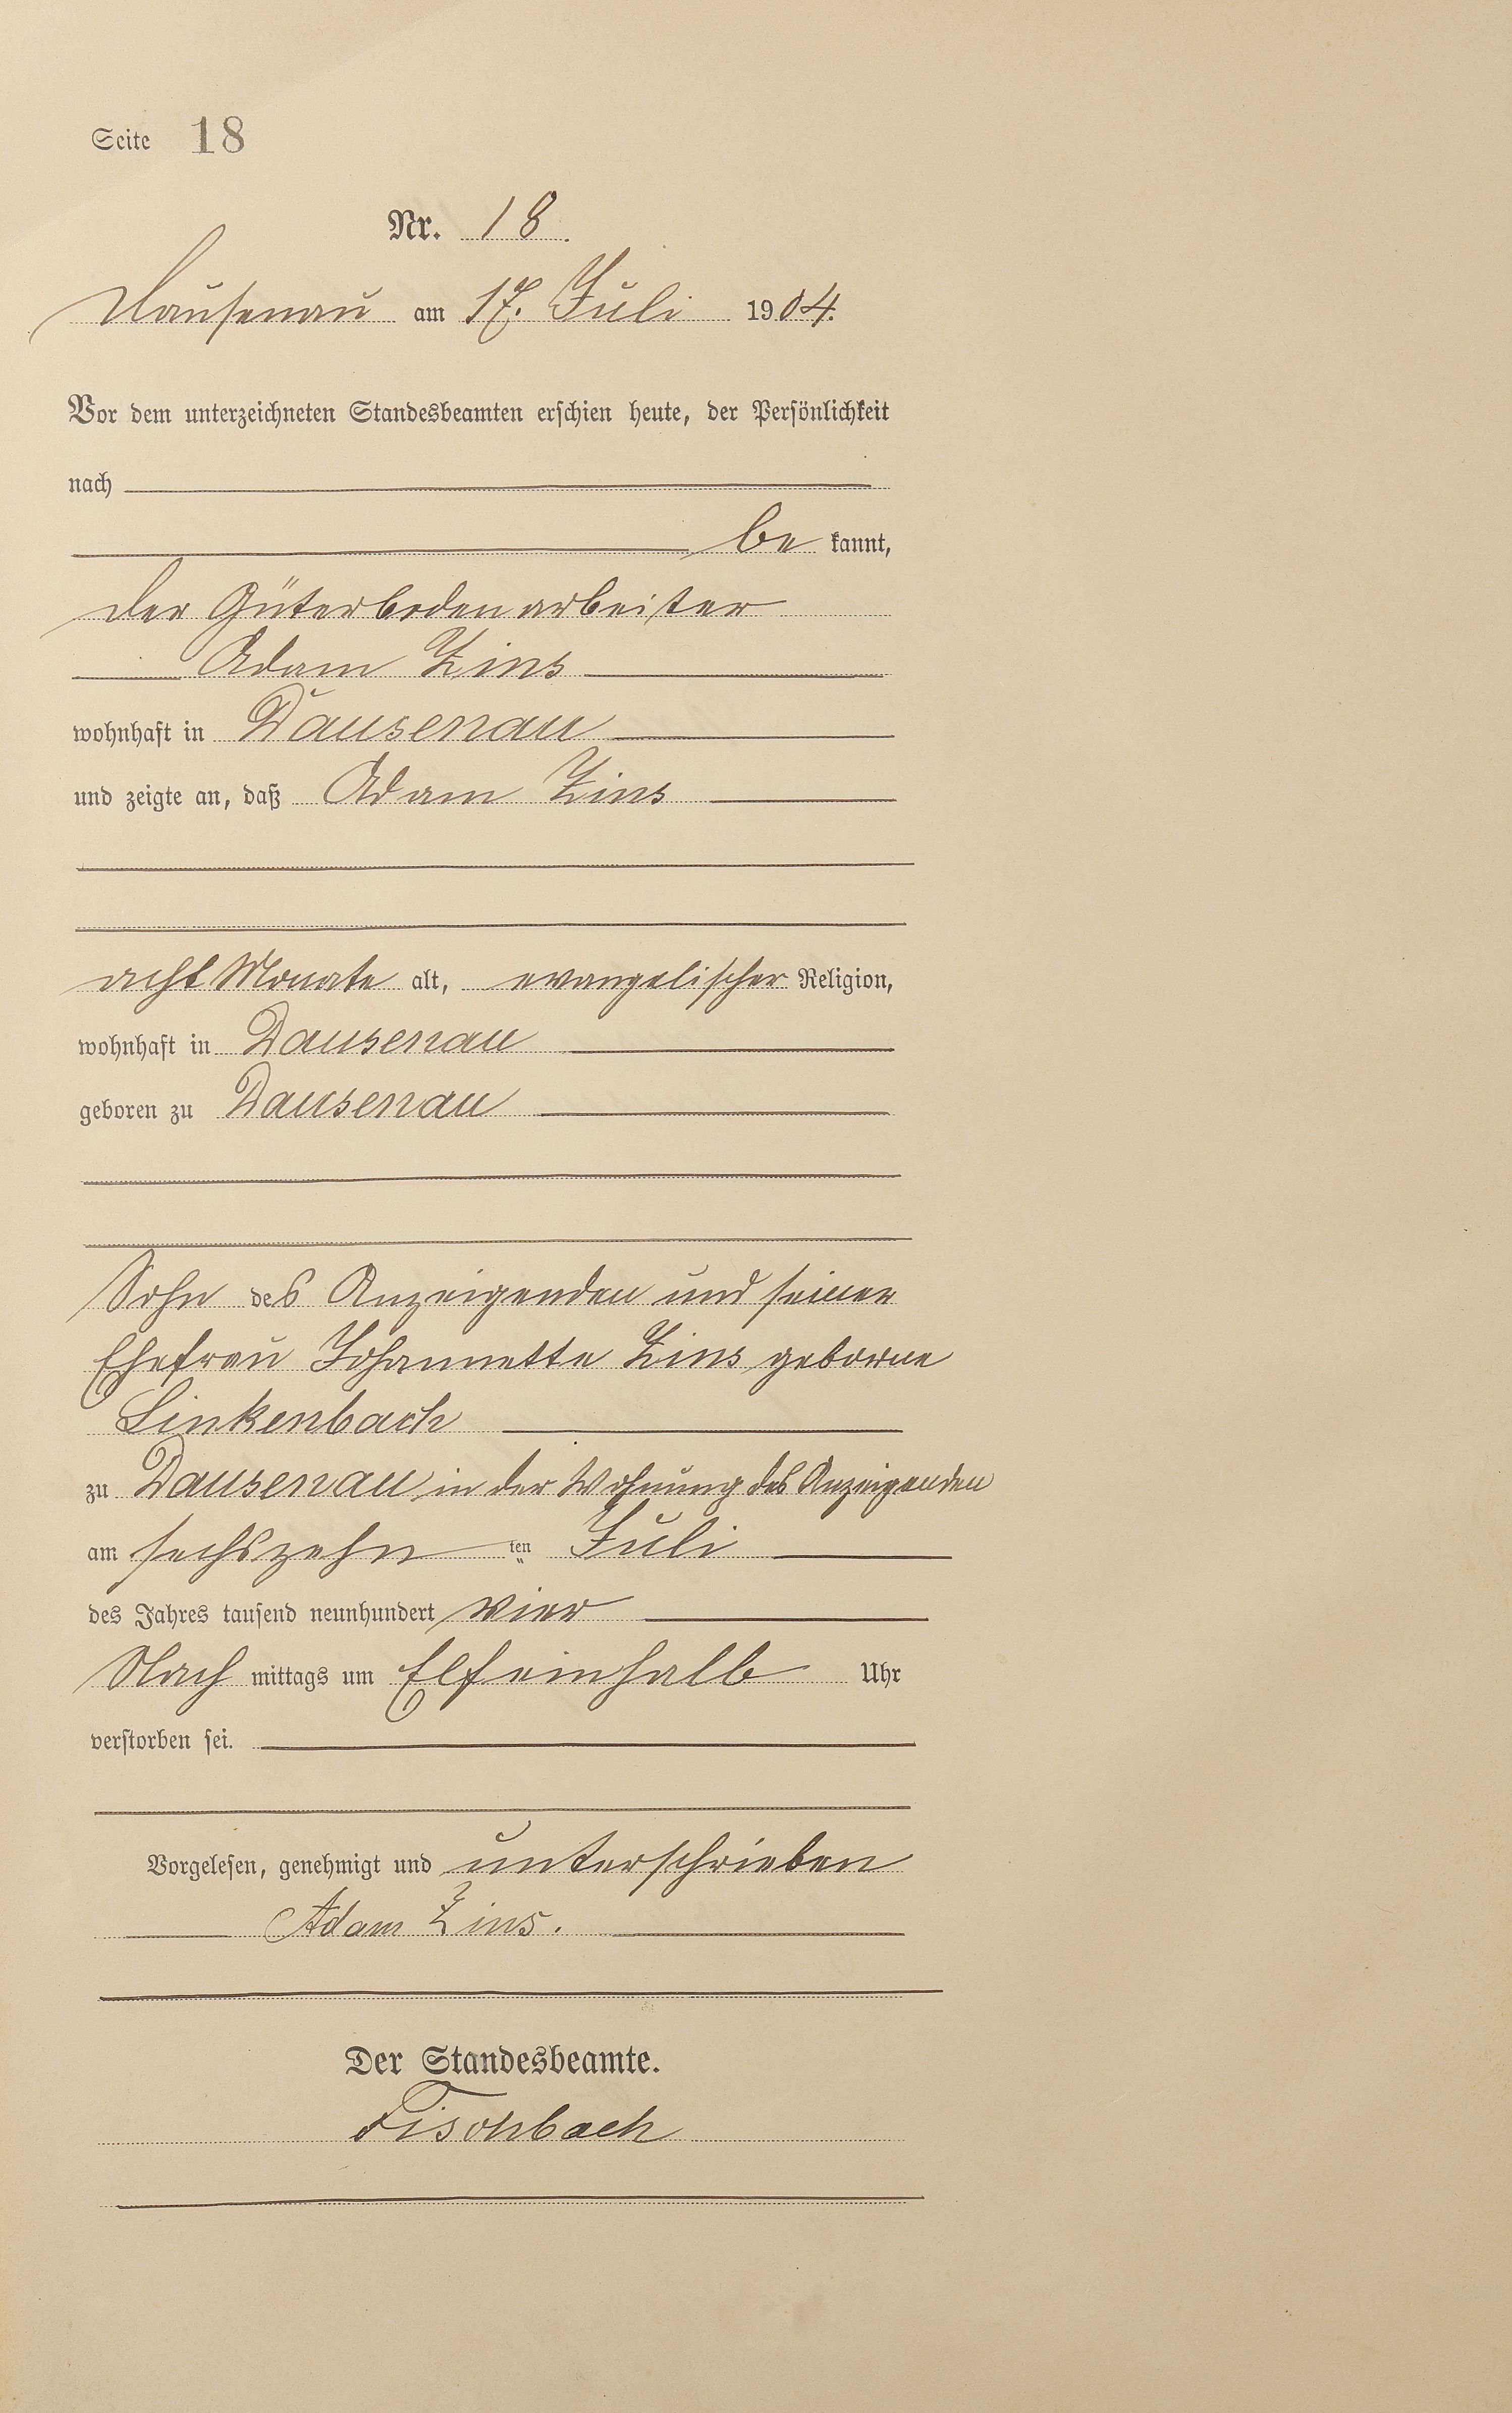 Seite 18
Nr. 18.
Dausenau am 17. Juli 1904.
Vor dem unterzeichneten Standesbeamten erschien heute, der Persönlichkeit
nach
be kannt,
der Güterbodenarbeiter
Adam Zins
wohnhaft in Dausenau
und zeigte an, daß Adam Zins
acht Monate alt, evangelischer Religion,
wohnhaft in Dausenau
geboren zu Dausenau
Sohn des Anzeigenden und seiner
Ehefrau Johannette Zins geborne
Linkenbach
zu Dausenau in der Wohnung des Anzeigenden
am sechszehn ten Juli
des Jahres tausend neunhundert vier
Nach mittags um Elfeinhalb Uhr
verstorben sei.
Vorgelesen, genehmigt und unterschrieben
Adam Zins.
Der Standesbeamte.
Fischbach